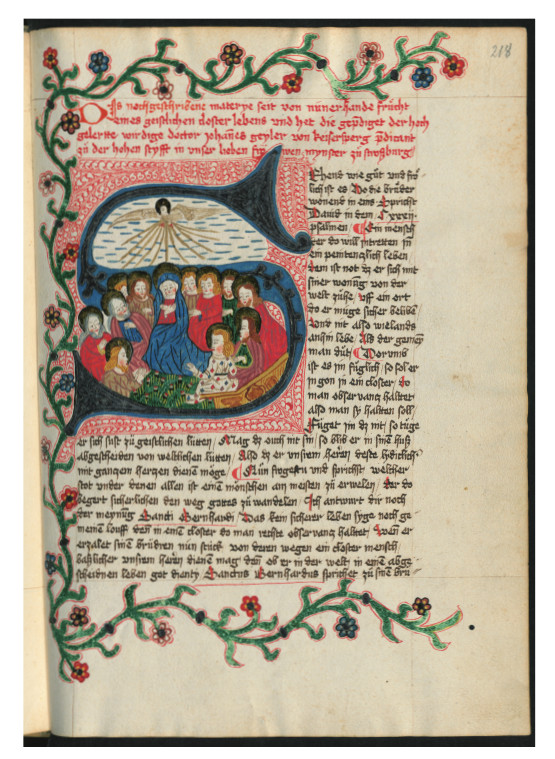 218
Dis nochgeschribene materye seit von nünerhande frücht
eines geistlichen closter lebens vnd het die geprediget der hoch
gelertte wirdige doctor johañes geyler von keisersperg p̃dicant
zů der hohen styfft in vnser lieben frowen mynster zů stroßburg
Sehend wie gůt vnd frö
lich ist es do die brüder
wonend in eins Spricht
Dauid in dem Cxxxij
psalmen Ein mensch
der do will intretten in
ein penitentzlich leben
dem ist not dz er sich mit
siner wonũg von der
welt zühe vff ein ort
do er müge sicher beliben
vnd nit also wielands
ansin lebe Als der gemein
man düt Dorumb
ist es im füglich so sol er
in gon in ein closter do
man obseruantz halttet
also man sy haltten soll
Füget im dz nit so tüge
er sich sust zů geistlichen lütten Mag dz ouch nit sin so blib er in sinẽ huß
abgescheiden von weltlichen lütten Also dz er vnsrem heren deste lydiclich
mit gantzem hertzen dienẽ möge Nun frogestu vnd sprichst welcher
stot vnder denen allen ist einẽ mönschen am meisten zů erwelen der do
begert sicherlichen den weg gottes zů wandelen Ich antwurt dir noch
der meynũg Sancti Bernhardi Das kein sicherer leben syge noch ge
meinem louff den in einẽ closter do man rechte obseruantz haltet Wen er
erzalet sinẽ brüdren nün stück von deren wegen ein closter mensch
baßlicher vnsrem herẽn dienẽ mag den ob er in der welt in einẽ abge
scheidnen leben got dientt Sanctus Bernhardus sprichet zů sinẽ brü